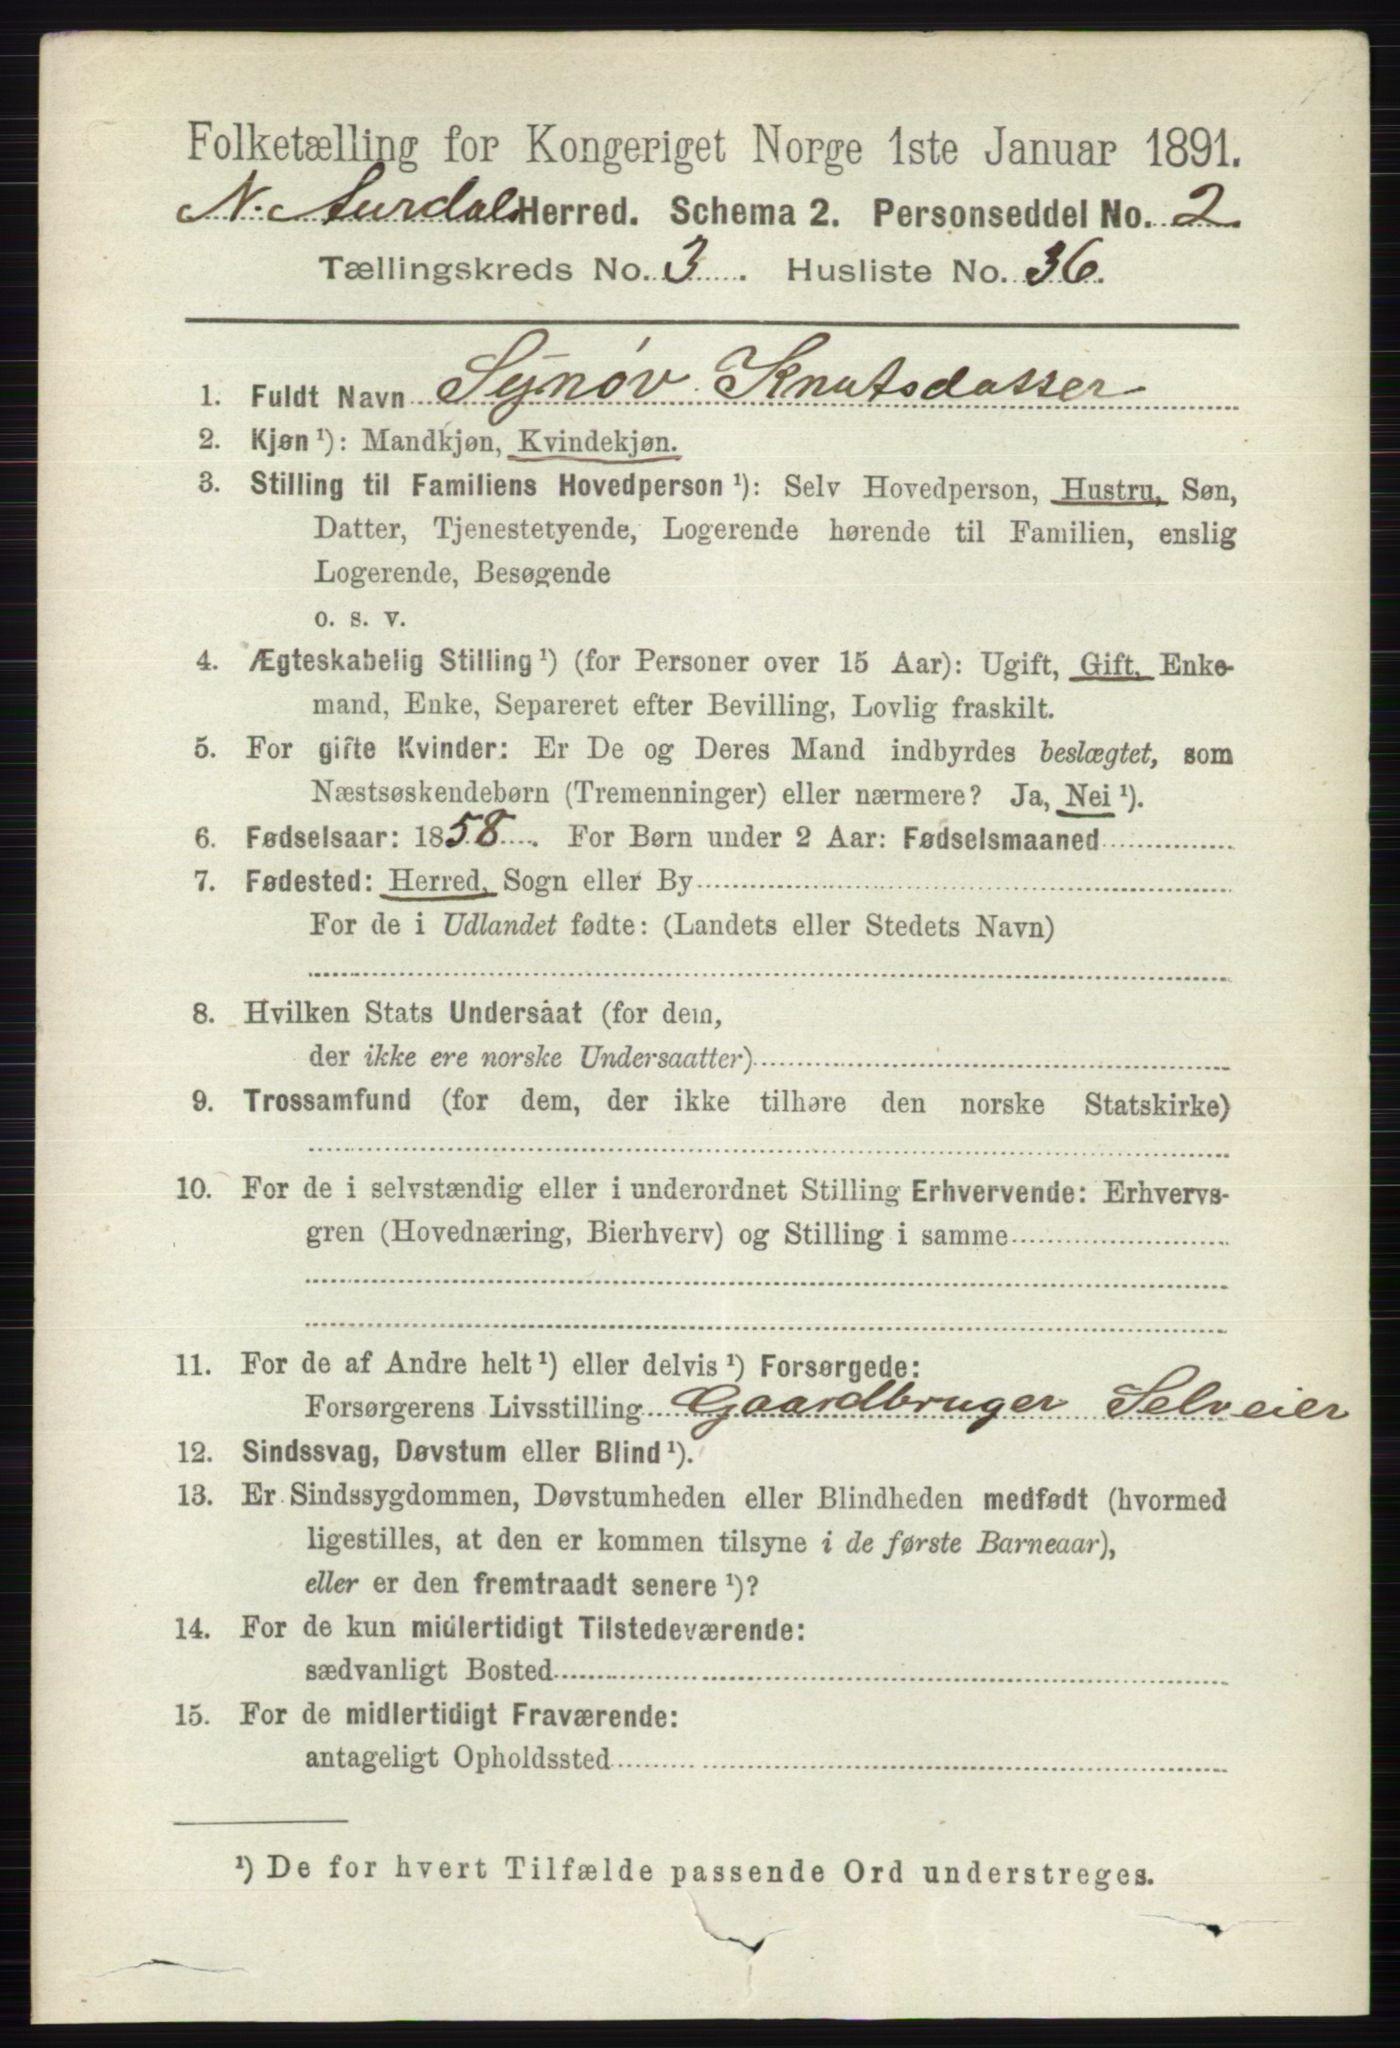 Folketælling for Kongeriget Norge 1ste Januar 1891.
N. Aurdal Herred. Schema 2. Personseddel No. 2
Tællingskreds No. 3. Husliste No. 36.
1. Fuldt Navn Synøv Knutsdatter
2. Kjøn ¹): Mandkjøn, Kvindekjøn.
3. Stilling til Familiens Hovedperson ¹): Selv Hovedperson, Hustru, Søn,
Datter, Tjenestetyende, Logerende hørende til Familien, enslig
Logerende, Besøgende
o. s. v.
4. Ægteskabelig Stilling ¹) (for Personer over 15 Aar): Ugift, Gift, Enke-
mand, Enke, Separeret efter Bevilling, Lovlig fraskilt.
5. For gifte Kvinder: Er De og Deres Mand indbyrdes beslægtet, som
Næstsøskendebørn (Tremenninger) eller nærmere? Ja, Nei ¹).
6. Fødselsaar: 1858. For Børn under 2 Aar: Fødselsmaaned
7. Fødested: Herred, Sogn eller By
For de i Udlandet fødte: (Landets eller Stedets Navn)
8. Hvilken Stats Undersaat (for dem,
der ikke ere norske Undersaatter)
9. Trossamfund (for dem, der ikke tilhøre den norske Statskirke)
10. For de i selvstændig eller i underordnet Stilling Erhvervende: Erhvervs-
gren (Hovednæring, Bierhverv) og Stilling i samme
11. For de af Andre helt ¹) eller delvis ¹) Forsørgede:
Forsørgerens Livsstilling Gaardbruger Selveier
12. Sindssvag, Døvstum eller Blind ¹).
13. Er Sindssygdommen, Døvstumheden eller Blindheden medfødt (hvormed
ligestilles, at den er kommen tilsyne i de første Barneaar),
eller er den fremtraadt senere ¹)?
14. For de kun midlertidigt Tilstedeværende:
sædvanligt Bosted
15. For de midlertidigt Fraværende:
antageligt Opholdssted
¹) De for hvert Tilfælde passende Ord understreges.